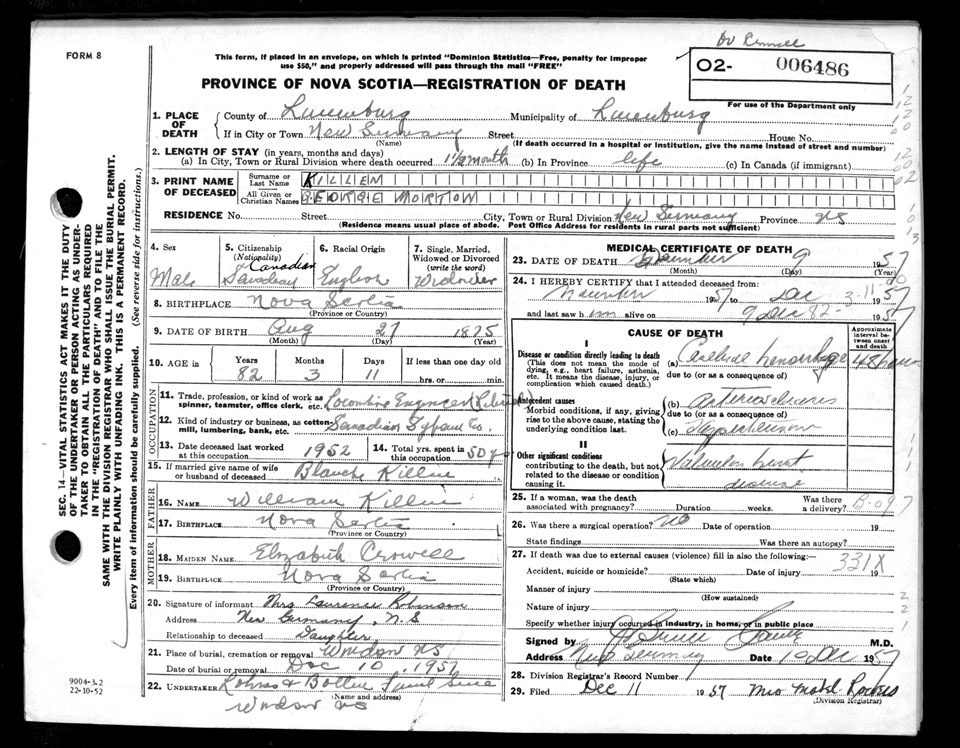 FORM 8
This form, if placed in an envelope, on which is printed "Dominion Statistics—Free, penalty for improper
use $50," and properly addressed will pass through the mail "FREE"
PROVINCE OF NOVA SCOTIA—REGISTRATION OF DEATH
O2- 006486
For use of the Department only
1. PLACE OF DEATH
County of Lunenburg Municipality of Lunenburg
If in City or Town New Germany Street House No.
(Name) (If death occurred in a hospital or institution, give the name instead of street and number)
2. LENGTH OF STAY (in years, months and days)
(a) In City, Town or Rural Division where death occurred 1½ month (b) In Province life (c) In Canada (if immigrant)
3. PRINT NAME OF DECEASED
Surname or Last Name KILLEM
All Given or Christian Names GEORGE MORTON
RESIDENCE No. Street City, Town or Rural Division New Germany Province NS
(Residence means usual place of abode. Post Office Address for residents in rural parts not sufficient)
4. Sex Male
5. Citizenship (Nationality) Canadian
6. Racial Origin English
7. Single, Married, Widowed or Divorced (write the word) Widower
8. BIRTHPLACE Nova Scotia
(Province or Country)
9. DATE OF BIRTH Aug 27 1875
(Month) (Day) (Year)
10. AGE in Years Months Days If less than one day old
82 3 11 hrs. or min.
OCCUPATION
11. Trade, profession, or kind of work as
spinner, teamster, office clerk, etc. Locomotive Engineer (Retired)
12. Kind of industry or business, as cotton-
mill, lumbering, bank, etc. Canadian Gypsum Co.
13. Date deceased last worked at this occupation 1952
14. Total yrs. spent in this occupation 50 y
15. If married give name of wife or husband of deceased Blanch Killen
FATHER
16. NAME William Killen
17. BIRTHPLACE Nova Scotia
(Province or Country)
MOTHER
18. MAIDEN NAME Elizabeth Crowell
19. BIRTHPLACE Nova Scotia
(Province or Country)
20. Signature of informant Mrs Laurence Robinson
Address New Germany, N.S
Relationship to deceased Daughter
21. Place of burial, cremation or removal Windsor NS
Date of burial or removal Dec 10, 1957
22. UNDERTAKER
(Name and address)
Windsor NS
9004-3.2
22-10-52
SEC. 14—VITAL STATISTICS ACT MAKES IT THE DUTY
OF THE UNDERTAKER OR PERSON ACTING AS UNDER-
TAKER TO OBTAIN ALL THE PARTICULARS REQUIRED
IN THE "REGISTRATION OF DEATH" AND TO FILE THE
SAME WITH THE DIVISION REGISTRAR WHO SHALL ISSUE THE BURIAL PERMIT.
WRITE PLAINLY WITH UNFADING INK. THIS IS A PERMANENT RECORD.
Every item of information should be carefully supplied. (See reverse side for instructions.)
MEDICAL CERTIFICATE OF DEATH
23. DATE OF DEATH December 9 1957
(Month) (Day) (Year)
24. I HEREBY CERTIFY that I attended deceased from:
November 1957 to Dec 1957
and last saw him alive on 9 Dec 1957
82-3-11
CAUSE OF DEATH
Approximate interval between onset and death
I
Disease or condition directly leading to death
(This does not mean the mode of dying, e.g., heart failure, asthenia, etc. It means the disease, injury, or complication which caused death.)
(a) Cerebral hemorrhage 48 hours
due to (or as a consequence of)
Antecedent causes
Morbid conditions, if any, giving rise to the above cause, stating the underlying condition last.
(b) Arteriosclerosis
due to (or as a consequence of)
(c) Hypertension
II
Other significant conditions
contributing to the death, but not related to the disease or condition causing it.
Valvular heart
disease
25. If a woman, was the death associated with pregnancy? Duration weeks. Was there a delivery?
26. Was there a surgical operation? No Date of operation 19
State findings Was there an autopsy?
27. If death was due to external causes (violence) fill in also the following:—
331X
Accident, suicide or homicide? Date of injury 19
(State which)
Manner of injury
(How sustained)
Nature of injury
Specify whether injury occurred in industry, in home, or in public place
Signed by M.D.
Address New Germany Date 10 Dec 1957
28. Division Registrar's Record Number
29. Filed Dec 11 1957 Mrs Mabel
(Division Registrar)